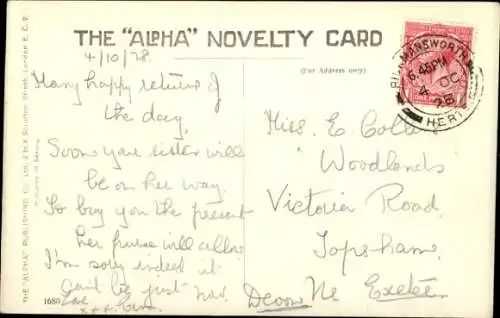 THE "ALPHA" NOVELTY CARD
(For Address only).
4/10/28.
Many happy returns of
the day.
Soon your sister will
be on her way.
To buy you the present
her purse will allow
I'm sorry indeed it
can't be just now.
Love
x x x
RICKMANSWORTH
6.45PM
4 OC
28
HERTS
Miss. E. Colle
Woodlands
Victoria Road
Topsham.
Nr. Exeter
Devon
THE "ALPHA" PUBLISHING CO. LTD. 2 to 4 Scrutton Street, London E.C.2.
1680